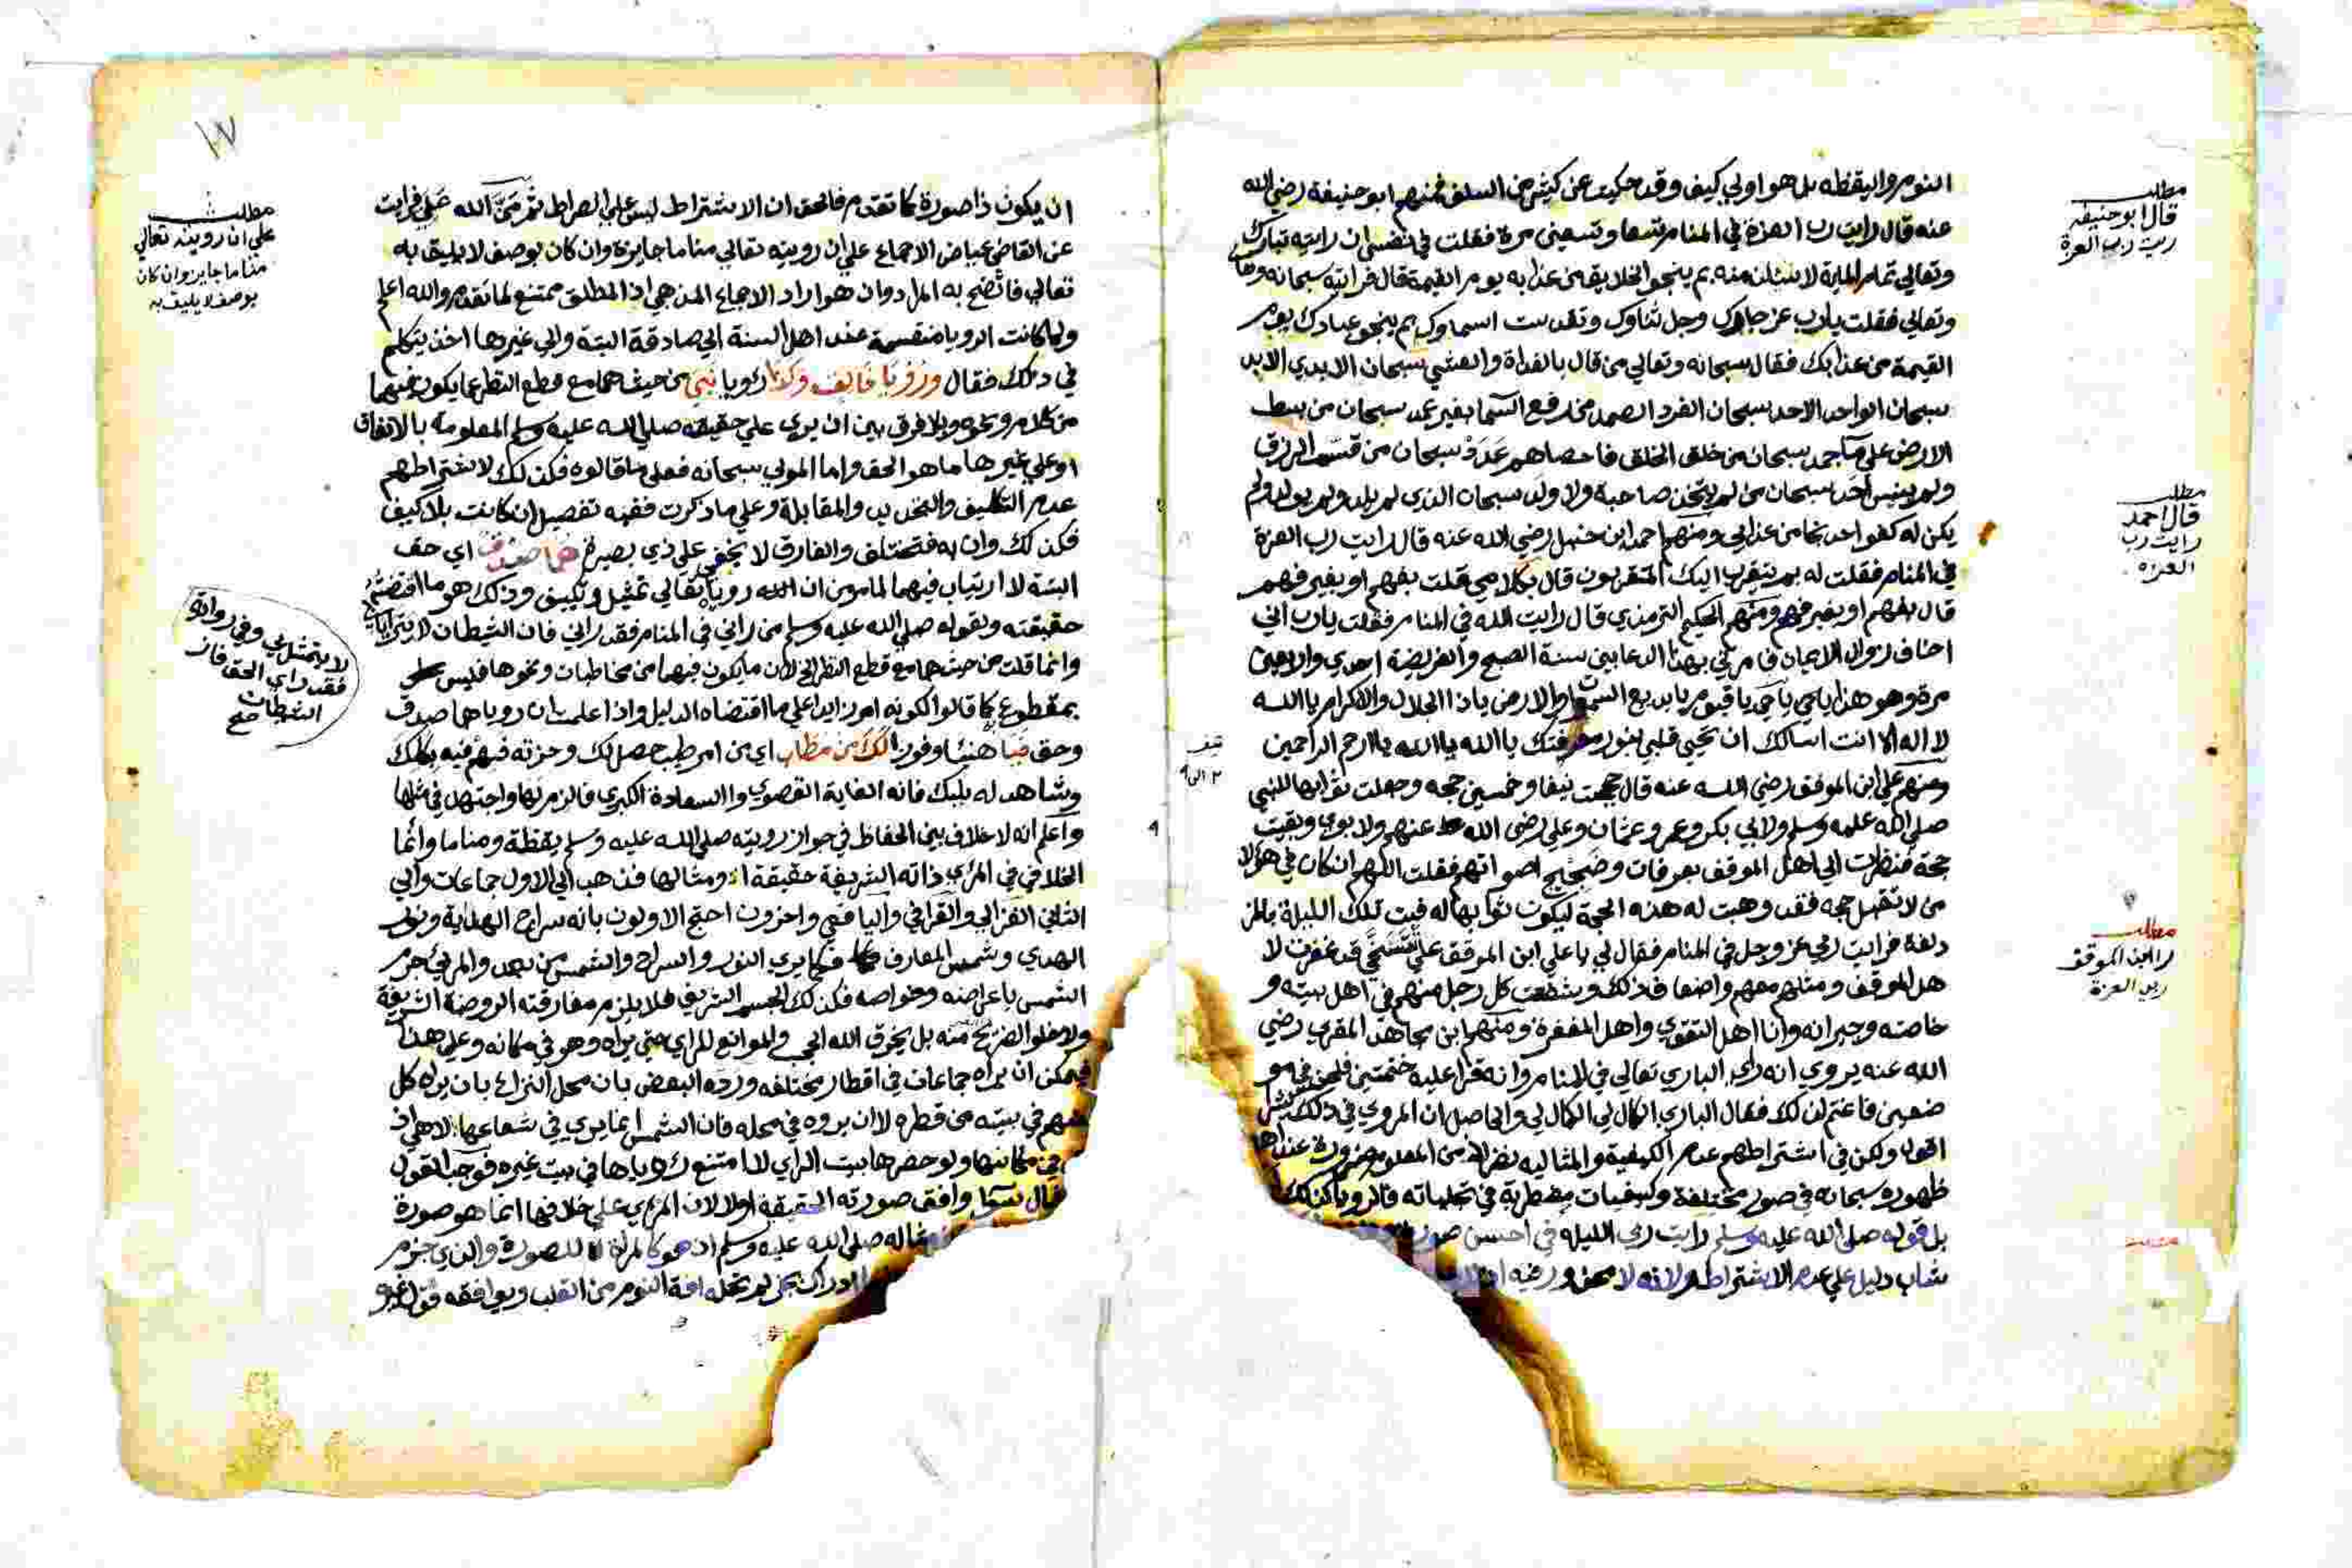 النوم واليقظه بل هو اولي كيف وقد حكيت عن كثير من السلف فمنهم ابو حنيفة رضي الله
عنه قال رايت رب العزة في المنام تسعا وتسعين مرة فقلت في نفسي ان رايته تبارك
وتعالي تمام الماية لاسئلنه بم ينجو الخلايق من عذابه يوم القيمة قال فرايته سبحانه
وتعالي فقلت يارب عز جارك وجل ثناوك وتقدست اسماوك بم ينجو عبادك يوم
القيمة من عذابك فقال سبحانه وتعالي من قال بالغداة والعشي سبحان الابدي الابد
سبحان الواحد الاحد سبحان الفرد الصمد من رفع السما بغير عمد سبحان من بسط
الارض علي ما جمد سبحان من خلق الخلق فاحصاهم عدد سبحان من قسم الرزق
ولم ينس احد سبحان من لم يتخذ صاحبة ولا ولد سبحان الذي لم يلد ولم يولد ولم
يكن له كفوا احد نجا من عذابي ومنهم احمد ابن حنبل رضي الله عنه قال رايت رب العزة
في المنام فقلت له بم يتقرب اليك المتقربون قال بكلامي قلت بفهم او بغير فهم
قال بفهم او بغير فهم ومنهم الحكيم الترمذي قال رايت الله في المنام فقلت يارب اني
اخاف زوال الايمان فامرني بهذا الدعا بين سنة الصبح والفريضة احدي واربعين
مرة وهو هذا ياحي ياحي يا قيوم يا بديع السموات والارض ياذا الجلال والاكرام يا الله
لا اله الا انت اسالك ان تحيي قلبي بنور معرفتك يا الله يا الله يا ارحم الراحمين
ومنهم علي ابن الموفق رضي الله عنه قال حججت نيفا وخمسين حجه وجعلت ثوابها للنبي
صلي الله عليه وسلم ولابي بكر وعمر وعثمان وعلي رضي الله عنهم ولابوي وبقيت
حجة فنظرت الي اهل الموقف بعرفات وضجيج اصواتهم فقلت اللهم ان كان في هولا
من لا تقبل حجه فقد وهبت له هذه الحجة ليكون ثوابها له فبت تلك الليلة بالمز
دلفة فرايت ربي عز وجل في المنام فقال لي يا علي ابن الموفق علي تتسخي قد غفرت لا
هل الموقف ومثلهم معهم واضعاف ذلك وشفعت كل رجل منهم في اهل بيته و
خاصته وجيرانه وانا اهل التقوي واهل المغفرة ومنهم ابن مجاهد المقري رضي
الله عنه يروي انه راي الباري تعالي في المنام وانه قرا عليه ختمتين فلحن في مو
ضعين فاغتم لذلك فقال الباري الكمال لي الكمال لي والحاصل ان المروي في ذلك كثير
اقول ولكن في اشتراطهم عدم الكيفية والمثاليه نظر لان من المعلوم ضرورة عندنا
ظهوره سبحانه في صور مختلفة وكيفيات مضطربة في تجلياته فالرويا كذلك
بل قوله صلي الله عليه وسلم رايت ربي الليله في احسن صورة
شاب دليل علي عدم الاشتراط ولانه لا محذور فيه
مطلب
قال ابو حنيفه
ريت رب العزة
مطلب
قال احمد
رايت رب
العزه
مطلب
را ابن الموقف
رب العزة
ان يكون ذا صورة كما تقدم فالحق ان الاشتراط ليس علي الصراط ثم من الله علي فرايت
عن القاضي عياض الاجماع علي ان رويته تعالي مناما جايزة وان كان بوصف لا يليق به
تعالي فاتضح به المراد وان هو اراد الاجماع المذهبي اذ المطلق ممتنع لما تقدم والله اعلم
ولما كانت الرويا منقسمة عند اهل السنة الي صادقة البتة والي غيرها اخذ يتكلم
في ذلك فقال ورويا خالق وكذا رويا نبي من حيث هما مع قطع النظر عما يكون فيهما
من كلام ونحوه وبلا فرق بين ان يري علي حقيقته صلي الله عليه وسلم المعلومة بالاتفاق
او علي غيرها ما هو الحق واما المولي سبحانه فعلي ما قالوه فكذلك لاشتراطهم
عدم التكليف والتحديد والمقابلة وعلي ما ذكرت ففيه تفصيل ان كانت بلا كيف
فكذلك وان به فتختلف والفارق لا يخفي علي ذي بصيرة هما صدق اي حق
البتة لا ارتياب فيهما لما مر من ان الله رويا تعالي تمثيل وتكييف وذلك هو ما اقتضته
حقيقته ولقوله صلي الله عليه وسلم من راني في المنام فقد راني فان الشيطان لا يترايا بي
وانما قلت من حيث هما مع قطع النظر الخ لان ما يكون فيهما من مخاطبات ونحوها فليس
بمقطوع كما قالوا لكونه امر زايد اعلي ما اقتضاه الدليل واذا علمت ان روياها صدق
وحق هنيئا وفوزا لك من مطلب اي من امر طيب حصل لك وحزته فبهم فيه بكلك
وشاهد له بلبك فانه الغاية القصوي والسعادة الكبري فالزمرتها واجتهد في مثلها
واعلم انه لا خلاف بين الحفاظ في جواز رويته صلي الله عليه وسلم يقظة ومناما وانما
الخلاف في المري ذاته الشريفة حقيقة او مثالها فذهب الي الاول جماعات والي
الثاني الغزالي والقرافي واليافعي واخرون احتج الاولون بانه سراج الهداية ونور
الهدي وشمس المعارف فكما يري النور والسراج والشمس من بعد والمري جرم
الشمس باعراضه وخواصه فكذلك الجسم الشريف فلا يلزم مفارقته الروضة الشريفة
ولا خلو الضريح منه بل يخرق الله الحجب والموانع للراي حتي يراه وهو في مكانه وعلي هذا
فيمكن ان يراه جماعات في اقطار مختلفه ورده البعض بان محل النزاع بان يراه كل
منهم في بيته من قطره لا ان يروه في محله فان الشمس انما يري في شعاعها لا هي اذ
في مكانها ولو حضرها بيت الراي لامتنع روياها في بيت غيره فوجب القول
وافق صورته الحقيقه اولا لان المري علي خلافها انما هو صورة
مثاله صلي الله عليه وسلم اذ هو كالمراة للصورة والذي جزم
الادراك بجز لم تحله افة النوم من القلب ويوافقه قول
مطلب
علي ان رويته تعالي
مناما جايز وان كان
بوصف لا يليق به
لا يتمثل بي وفي رواية
فقد راي الحق فان
الشيطان
صح